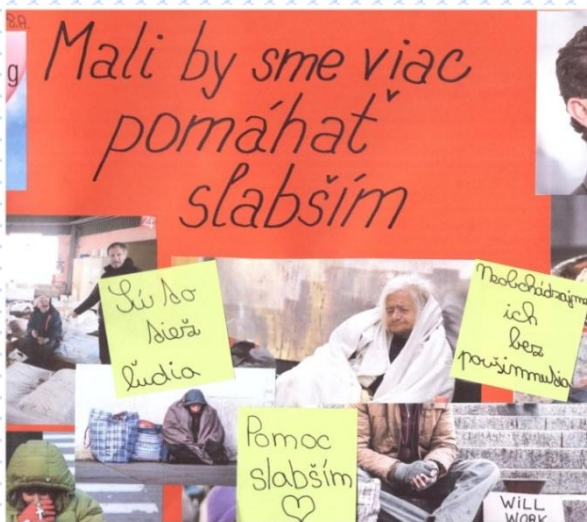 8.A.
g
Mali by sme viac
pomáhať
slabším
Sú to
tiež
ľudia
Neobchádzajme
ich
bez
povšimnutia
Pomoc
slabším
WILL
WORK